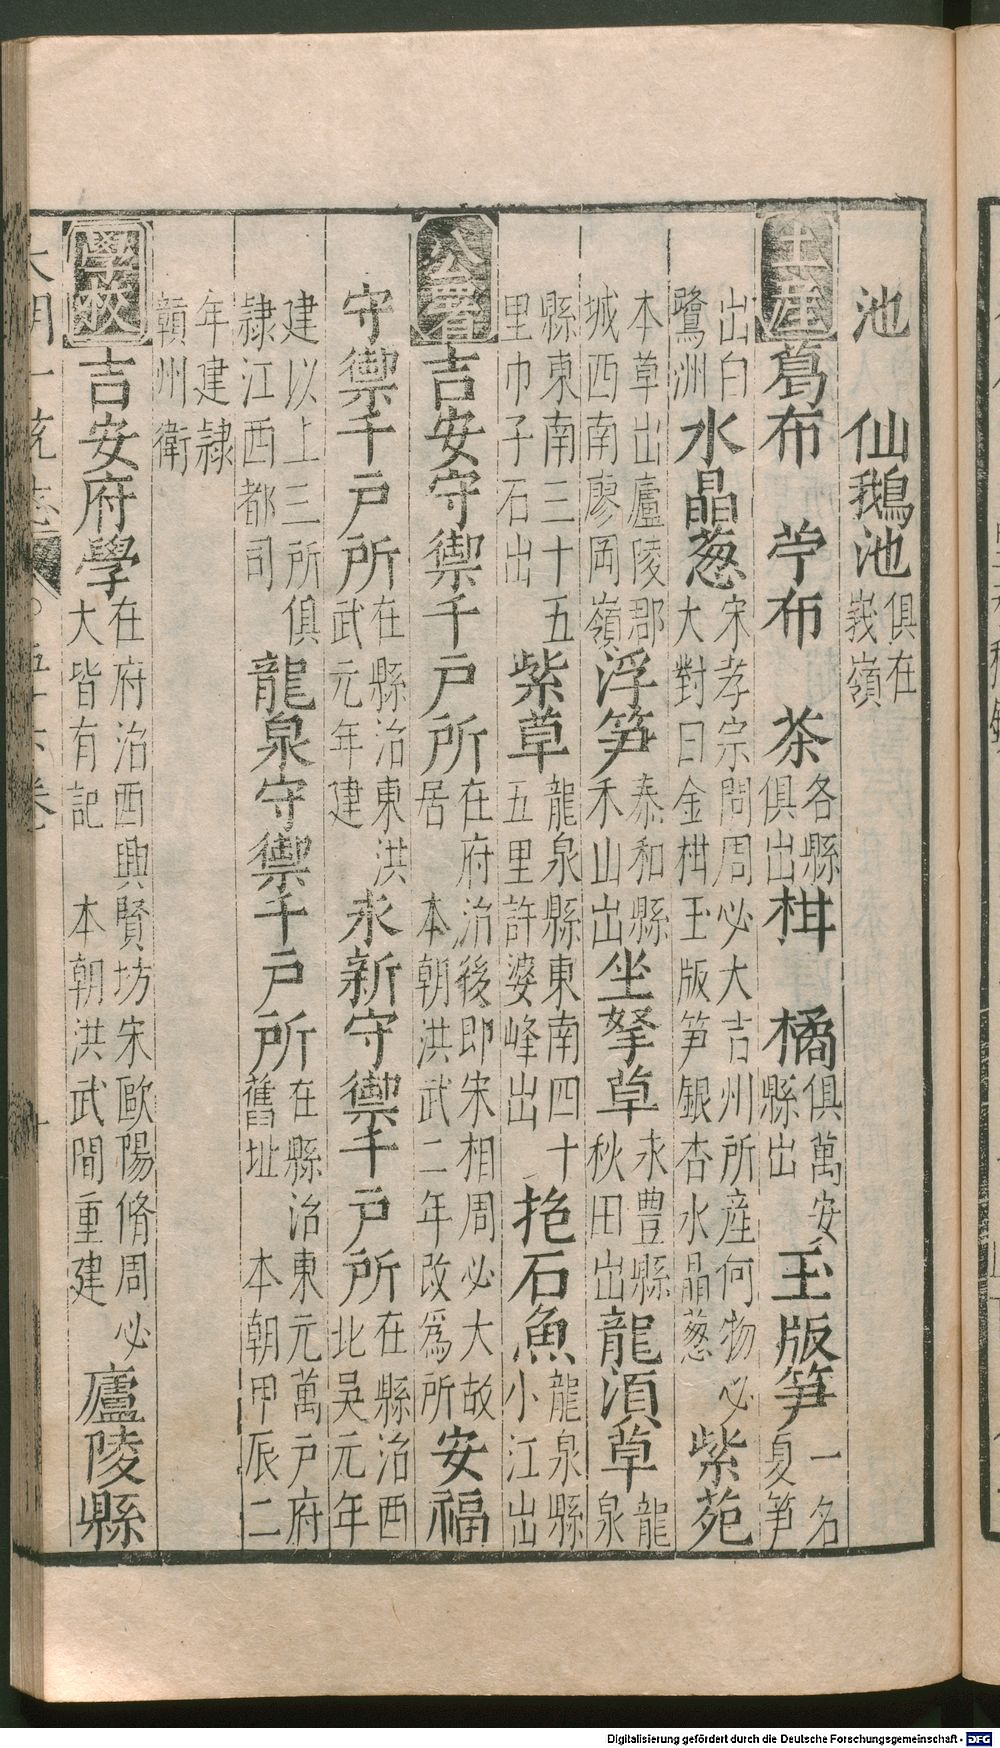 池　仙鵝池俱在峩嶺
土產葛布　苧布　茶各縣俱出柑　橘俱萬安縣出玉版笋一名夏笋
出白鷺洲水晶葱宋孝宗問周必大吉州所產何物必大對曰金柑玉版笋銀杏水晶葱紫苑
本草出廬陵郡城西南廖岡嶺浮笋泰和縣禾山出坐拏草永豐縣秋田出龍須草龍泉
縣東南三十五里巾子石出紫草龍泉縣東南四十五里許婆峰出抱石魚龍泉縣小江出
公署吉安守禦千戶所在府治後即宋相周必大故居　本朝洪武二年改為所安福
守禦千戶所在縣治東洪武元年建永新守禦千戶所在縣治西北吳元年
建以上三所俱隷江西都司龍泉守禦千戶所在縣治東元萬戶府舊址　本朝甲辰二
年建隷贑州衛
學校吉安府學在府治西興賢坊宋歐陽脩周必大皆有記　本朝洪武間重建廬陵縣
大明一統志　五十六卷
Digitalisierung gefördert durch die Deutsche Forschungsgemeinschaft - DFG